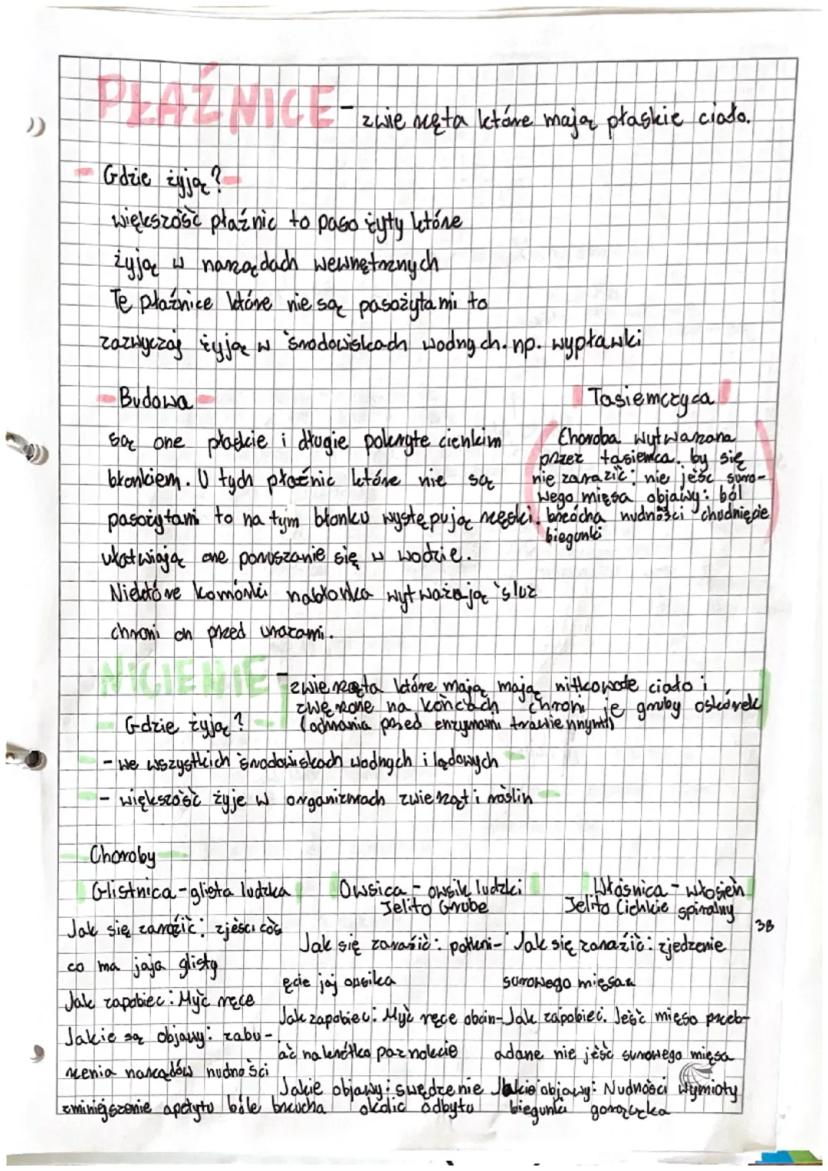 PŁAŹNICE - zwierzęta które mają płaskie ciało.
- Gdzie żyją? -
większość płaźnic to pasożyty które
żyją w narządach wewnętrznych
Te płaźnice które nie są pasożytami to
zazwyczaj żyją w środowiskach wodnych. np. wypławki
- Budowa -
są one płaskie i długie pokryte cienkim
błonkiem. U tych płaźnic które nie są
pasożytami to na tym błonku występują rzęski.
ułatwiają one poruszanie się w wodzie.
Niektóre komórki nabłonka wytważają śluz
chroni on przed urazami.
Tasiemczyca
Choroba wytwarzana
przez tasiemca. by się
nie zarazić: nie jeść suro-
wego mięsa objawy: ból
brzucha nudności chudnięcie
biegunki
NICIENIE - zwierzęta które mają mają nitkowate ciało i
zwężone na końcach chroni je gruby oskórek
(ochrania przed enzymami trawiennymi)
- Gdzie żyją? -
- we wszystkich środowiskach wodnych i lądowych
- większość żyje w organizmach zwierząt i roślin
Choroby
Glistnica - glista ludzka
Jak się zarazić: zjeść coś
co ma jaja glisty
Jak zapobiec: Myć ręce
Jakie są objawy: zabu-
rzenia narządów nudności
zmniejszenie apetytu bóle brzucha
Owsica - owsik ludzki
Jelito Grube
Jak się zarazić: połkni-
ęcie jaj owsika
Jak zapobiec: Myć ręce obcin-
ać na krótko paznokcie
Jakie objawy: swędzenie
okolic odbytu
Włośnica - włosień
Jelito Cichkie spiralny
Jak się zarazić: zjedzenie
surowego mięsa
Jak zapobiec. Jeść mięso przeb-
adane nie jeść surowego mięsa
Jakie objawy: Nudności Wymioty
biegunki gorączka
38